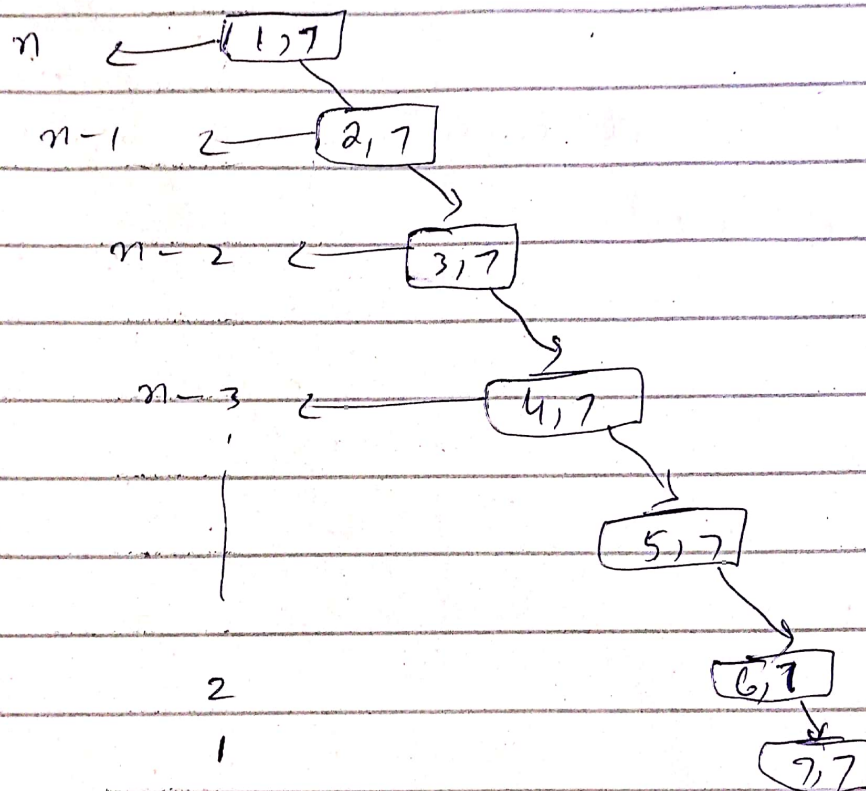 n 1,7
n-1 2,7
n-2 3,7
n-3 4,7
5,7
2 6,7
1 7,7